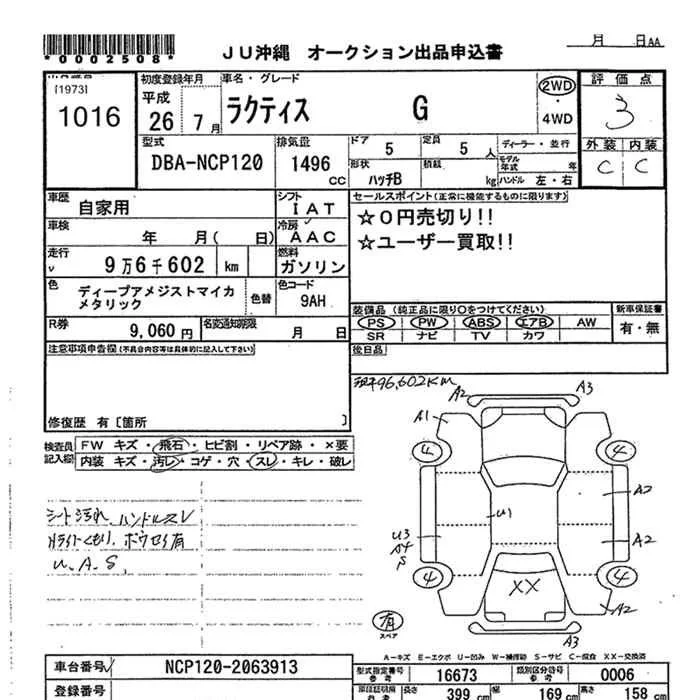 *0002508*
JU沖縄 オークション出品申込書
月 日AA
[1973]
1016
初度登録年月
平成
26 7月
車名・グレード
ラクティス G
2WD
・
4WD
評価点
3
外装 内装
C C
型式
DBA-NCP120
排気量
1496
CC
ドア
5
定員
5人
形状
ハッチB
積載
kg
ディーラー・並行
モデル年式 年
ハンドル 左・右
車歴
自家用
シフト
IAT
車検
年 月( 日)
冷房
AAC
走行
9万6千602 km
燃料
ガソリン
色
ディープアメジストマイカ
メタリック
色替
色コード
9AH
R券
9,060円
名変通知期限
月 日
セールスポイント(正常に機能するものに限ります)
☆0円売切り!!
☆ユーザー買取!!
装備品(純正品に限り○をつけてください)
PS PW ABS エアB AW
SR ナビ TV カワ
新車保証書
有・無
後日品
注意事項申告欄(不具合内容等は具体的に記入して下さい)
修復歴 有〔箇所 〕
検査員
記入欄
FW キズ・飛石・ヒビ割・リペア跡・×要
内装 キズ・汚レ・コゲ・穴・スレ・キレ・破レ
96,602KM
A2
A3
A1
4
4
A2
U1
U3
A4
S
A2
4
4
XX
A2
A3
シート汚れ ハンドルスレ
U.A.S.
有
スペア
A-キズ E-エクボ U-凹み W-補修跡 S-サビ C-腐食 XX-交換済
車台番号
NCP120-2063913
登録番号
型式指定番号
参考
16673
類別区分番号
参考
0006
長さ
399 cm
幅
169 cm
高さ
158 cm